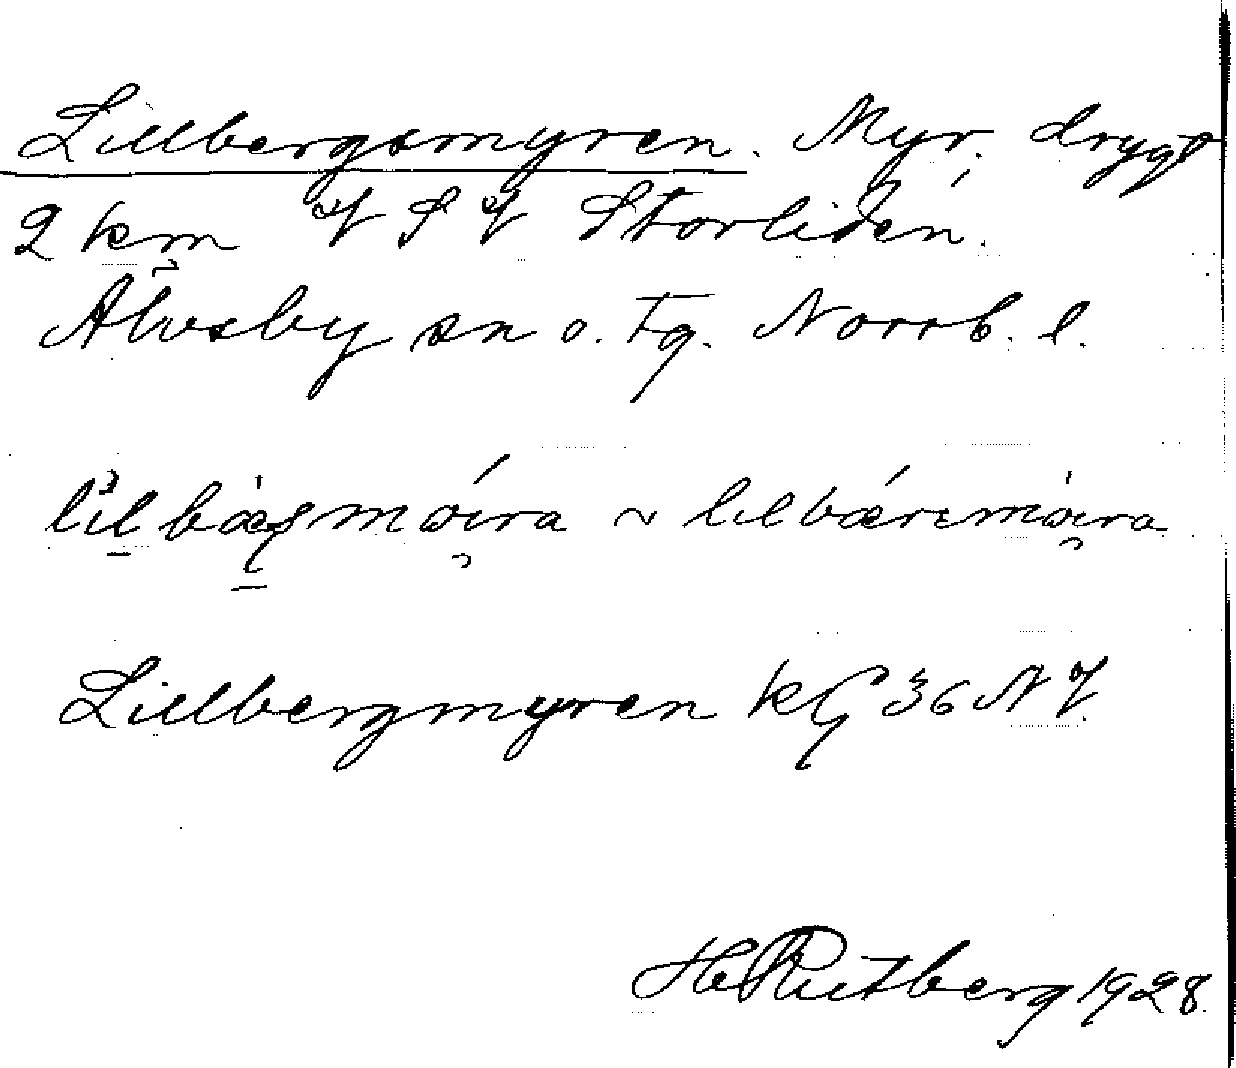 Lillbergsmyren. Myr. drygt
2 km VSV Storliden.
Älvsby sn o. tg. Norrb. l.
Lillbergmyren KG 36 NV.
H Rutberg 1928.